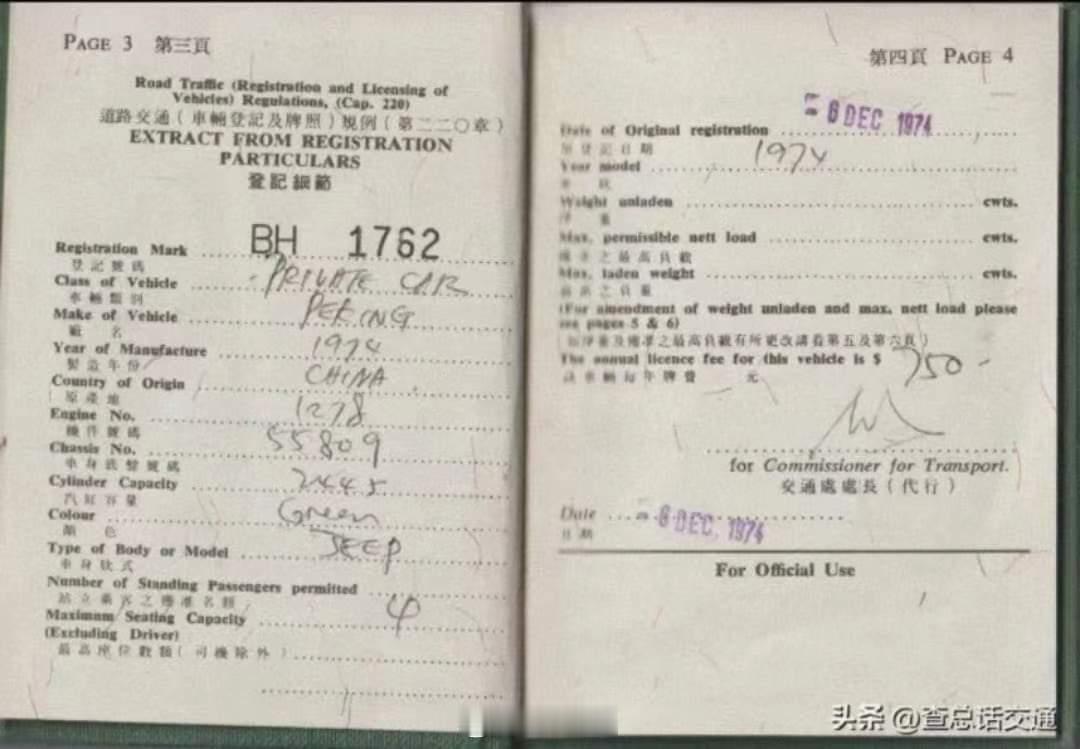 PAGE 3 第三頁
Road Traffic (Registration and Licensing of
Vehicles) Regulations, (Cap. 220)
道路交通(車輛登記及牌照)規例(第二二〇章)
EXTRACT FROM REGISTRATION
PARTICULARS
登記細節
Registration Mark BH 1762
登記號碼
Class of Vehicle PRIVATE CAR
車輛類別
Make of Vehicle PEKING
廠名
Year of Manufacture 1974
製造年份
Country of Origin CHINA
原產地
Engine No. 1278
機件號碼
Chassis No. 55809
車身底盤號碼
Cylinder Capacity 2445
汽缸容量
Colour Green
顏色
Type of Body or Model JEEP
車身款式
Number of Standing Passengers permitted
站立乘客之應准名額
Maximum Seating Capacity 4
(Excluding Driver)
最高座位數額(司機除外)
第四頁 PAGE 4
Date of Original registration - 6 DEC 1974
登記日期
Year model 1974
Weight unladen cwts.
Max. permissible nett load cwts.
之最高負載
Max. laden weight cwts.
(For amendment of weight unladen and max. nett load please
see pages 5 & 6)
之最高負載有所更改請看第五及第六頁)
The annual licence fee for this vehicle is $ 750 -
該車輛每年牌費 元
for Commissioner for Transport.
交通處處長(代行)
Date - 6 DEC. 1974
日期
For Official Use
头条 @查总话交通